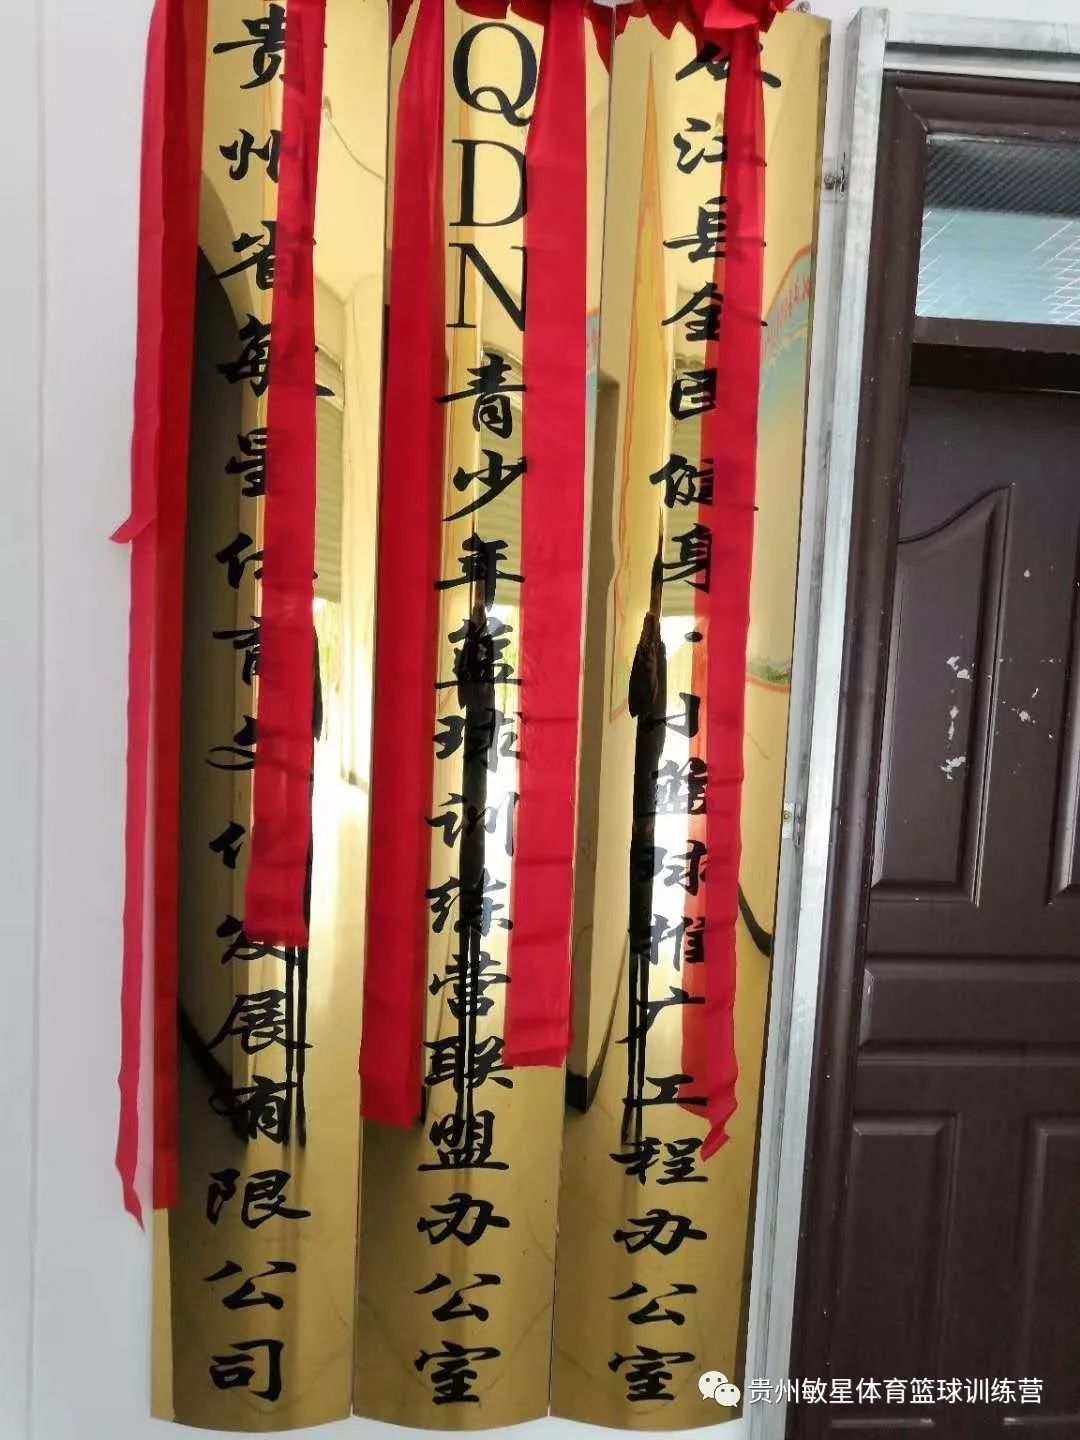 贵州省敏星体育文化发展有限公司
QDN青少年篮球训练营联盟办公室
从江县全民健身·小篮球推广工程办公室
贵州敏星体育篮球训练营